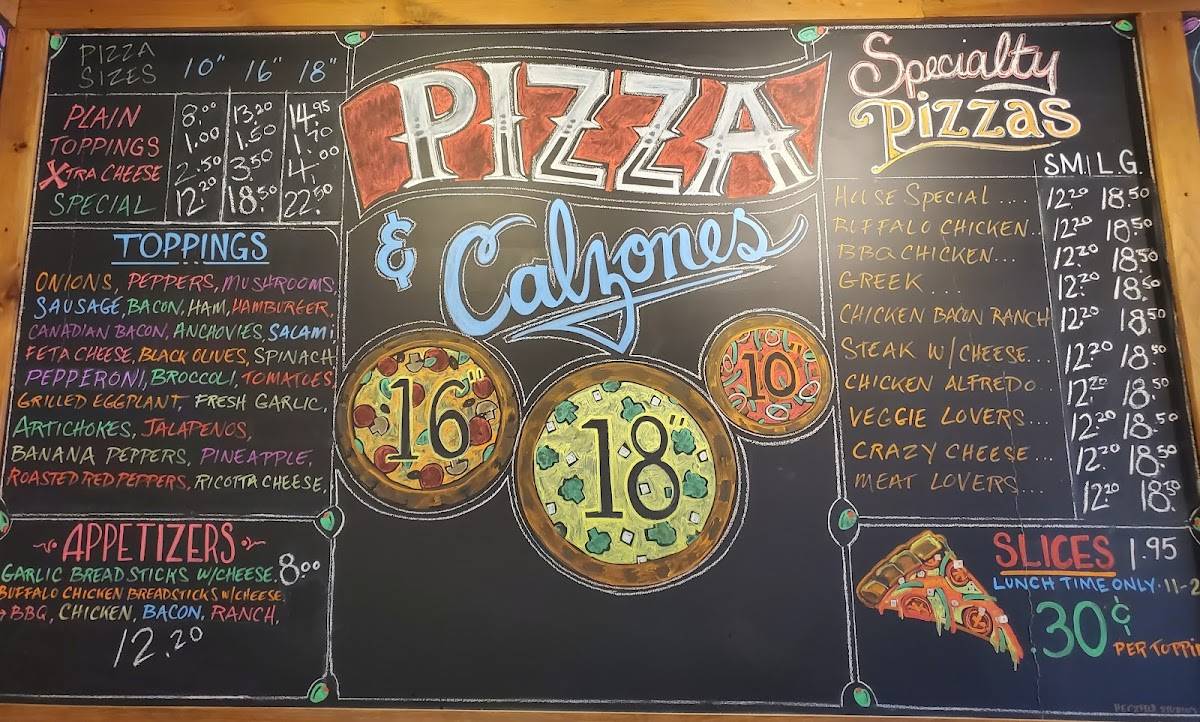 PIZZA SIZES 10" 16" 18"
PLAIN 8.00 13.20 14.95
TOPPINGS 1.00 1.50 1.70
XTRA CHEESE 2.50 3.50 4.00
SPECIAL 12.20 18.50 22.50
TOPPINGS
ONIONS, PEPPERS, MUSHROOMS,
SAUSAGE, BACON, HAM, HAMBURGER,
CANADIAN BACON, ANCHOVIES, SALAMI
FETA CHEESE, BLACK OLIVES, SPINACH
PEPPERONI, BROCCOLI, TOMATOES
GRILLED EGGPLANT, FRESH GARLIC,
ARTICHOKES, JALAPENOS,
BANANA PEPPERS, PINEAPPLE,
ROASTED RED PEPPERS, RICOTTA CHEESE,
APPETIZERS
GARLIC BREADSTICKS W/CHEESE. 8.00
BUFFALO CHICKEN BREADSTICKS W/CHEESE
BBQ, CHICKEN, BACON, RANCH,
12.20
PIZZA
& Calzones
16"
18"
10"
Specialty
Pizzas
SM. L.G.
HOUSE SPECIAL .... 12.20 18.50
BUFFALO CHICKEN.. 12.20 18.50
BBQ CHICKEN... 12.20 18.50
GREEK ... 12.20 18.50
CHICKEN BACON RANCH 12.20 18.50
STEAK W/CHEESE... 12.20 18.50
CHICKEN ALFREDO.. 12.20 18.50
VEGGIE LOVERS... 12.20 18.50
CRAZY CHEESE... 12.20 18.50
MEAT LOVERS... 12.20 18.50
SLICES 1.95
LUNCH TIME ONLY · 11-2
.30¢
PER TOPPIN